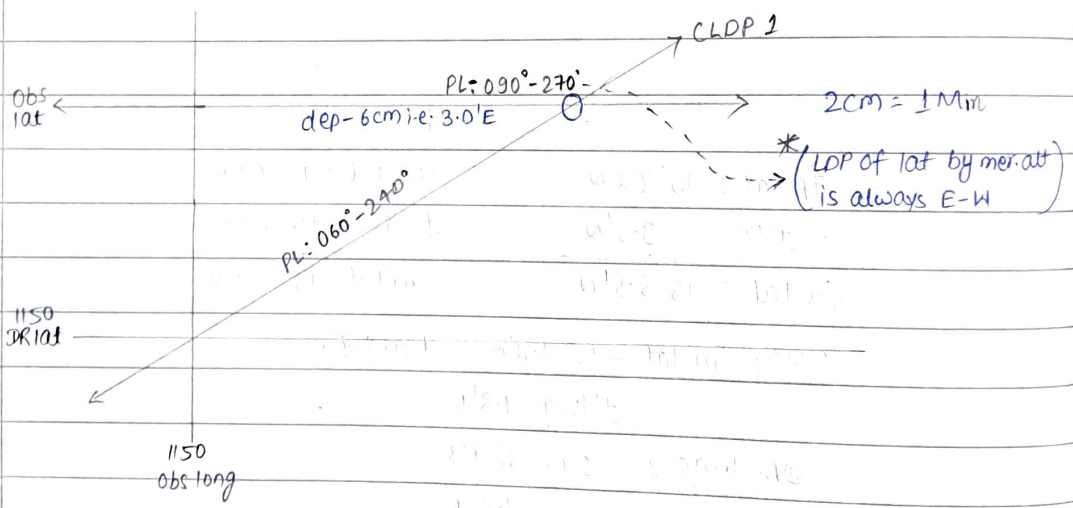 CLDP 1
PL: 090°-270°
Obs
lat
dep-6cm i.e. 3.0'E
2cm = 1 Min
*
(LOP of lat by mer.alt
is always E-W)
PL: 060°-240°
1150
DR lat
1150
obs long